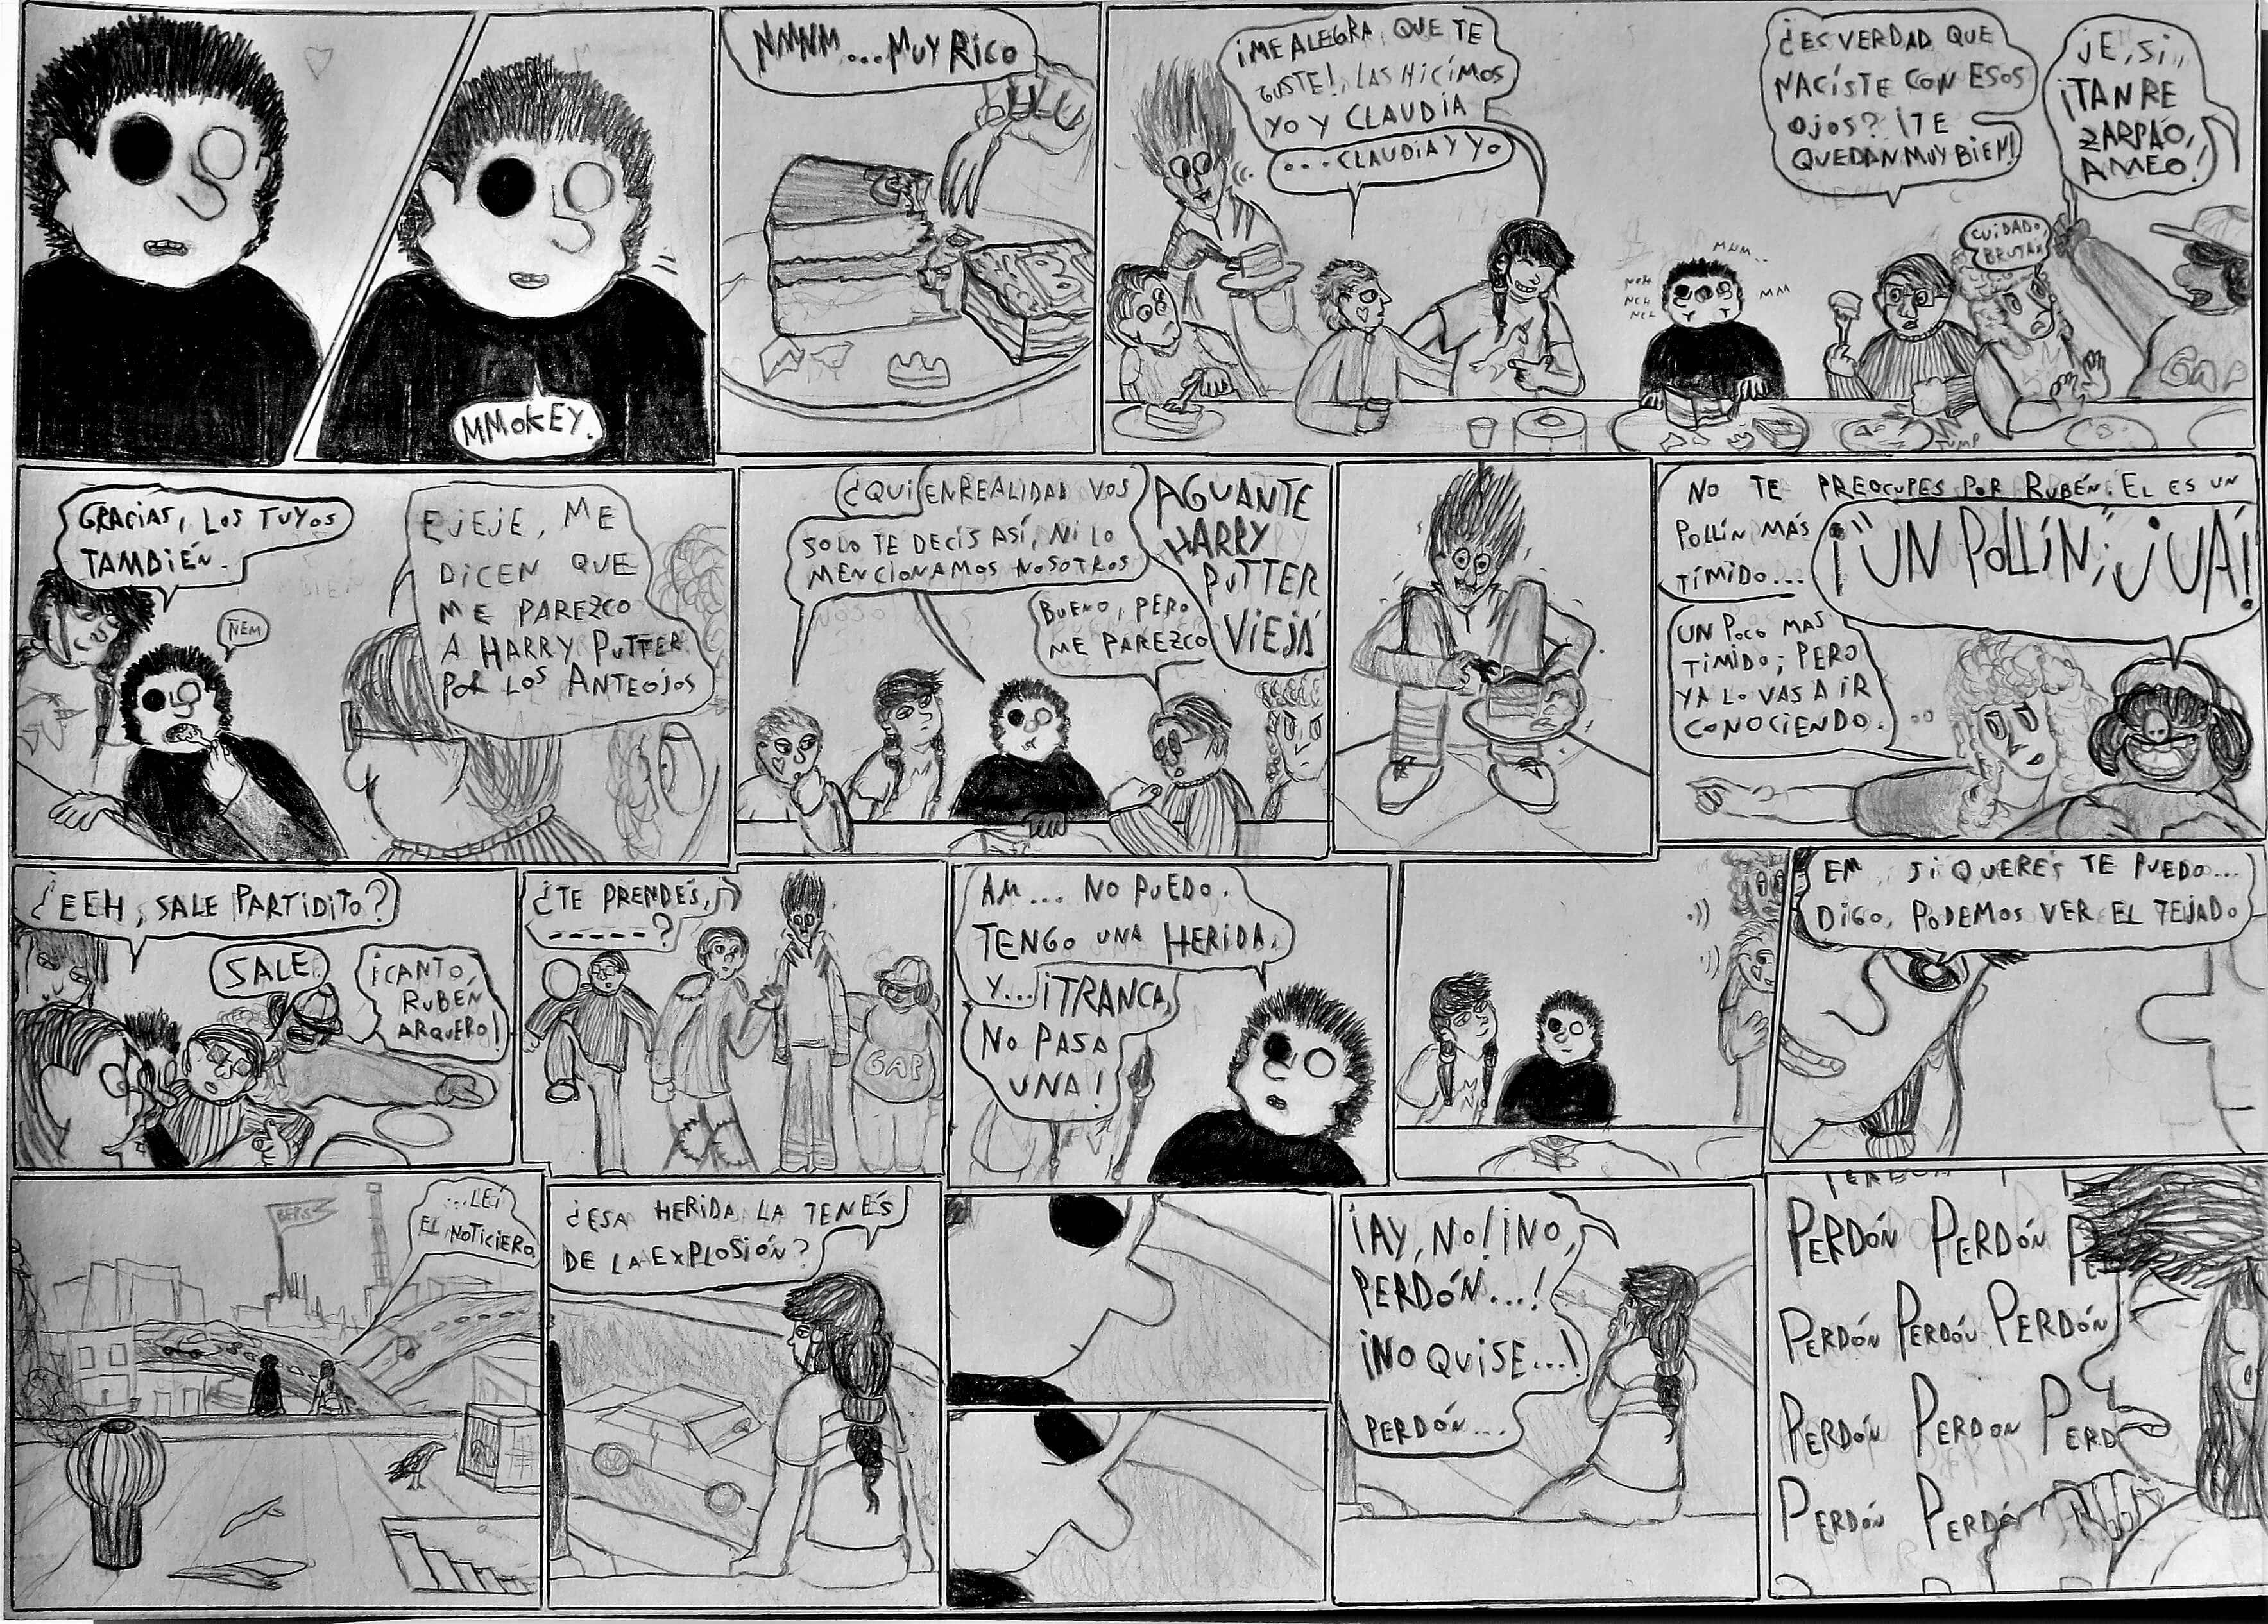 MMOKEY.
NMNM...MUY RICO
¡ME ALEGRA QUE TE
GUSTE!, LAS HICÍMOS
YO Y CLAUDIA
...CLAUDIA Y YO
MNM..
MM
¿ES VERDAD QUE
NACÍSTE CON ESOS
OJOS? ¡TE
QUEDAN MUY BIEN!
CUIDADO,
JE, SI,
¡TAN RE
ZARPÁO,
AMEO!
TUMP
GAP
GRACIAS, LOS TUYOS
TAMBIÉN.
ÑEM
EJEJE, ME
DICEN QUE
ME PAREZCO
A HARRY PUTTER
POR LOS ANTEOJOS
¿QUI
EN REALIDAD VOS
SOLO TE DECÍS ASÍ, NI LO
MENCIONAMOS NOSOTROS
BUENO, PERO
ME PAREZCO
AGUANTE
HARRY
PUTTER
VIEJÁ
NO TE PREOCUPES POR RUBÉN. EL ES UN
POLLÍN MÁS
TÍMIDO...
¡"UN POLLÍN", ¡UÁ!
UN POCO MAS
TIMIDO; PERO
YA LO VAS A IR
CONOCIENDO.
¿EEH, SALE PARTIDITO?
SALE
¡CANTO,
RUBÉN
ARQUERO!
¿TE PRENDÉS,
-----?
GAP
AM... NO PUEDO.
TENGO UNA HERIDA.
Y...
¡TRANCA,
NO PASA
UNA!
EM, SI QUERÉS TE PUEDO...
DIGO, PODEMOS VER EL TEJADO
...LEÍ
EL NOTICIERO.
¿ESA HERIDA LA TENÉS
DE LA EXPLOSIÓN?
¡AY, NO! ¡NO,
PERDÓN...!
¡NO QUISE...!
PERDÓN...
PERDÓN
PERDÓN PERDÓN PE
PERDÓN PERDÓN PERDÓN
PERDÓN PERDON PERD
PERDÓN PERDÓ